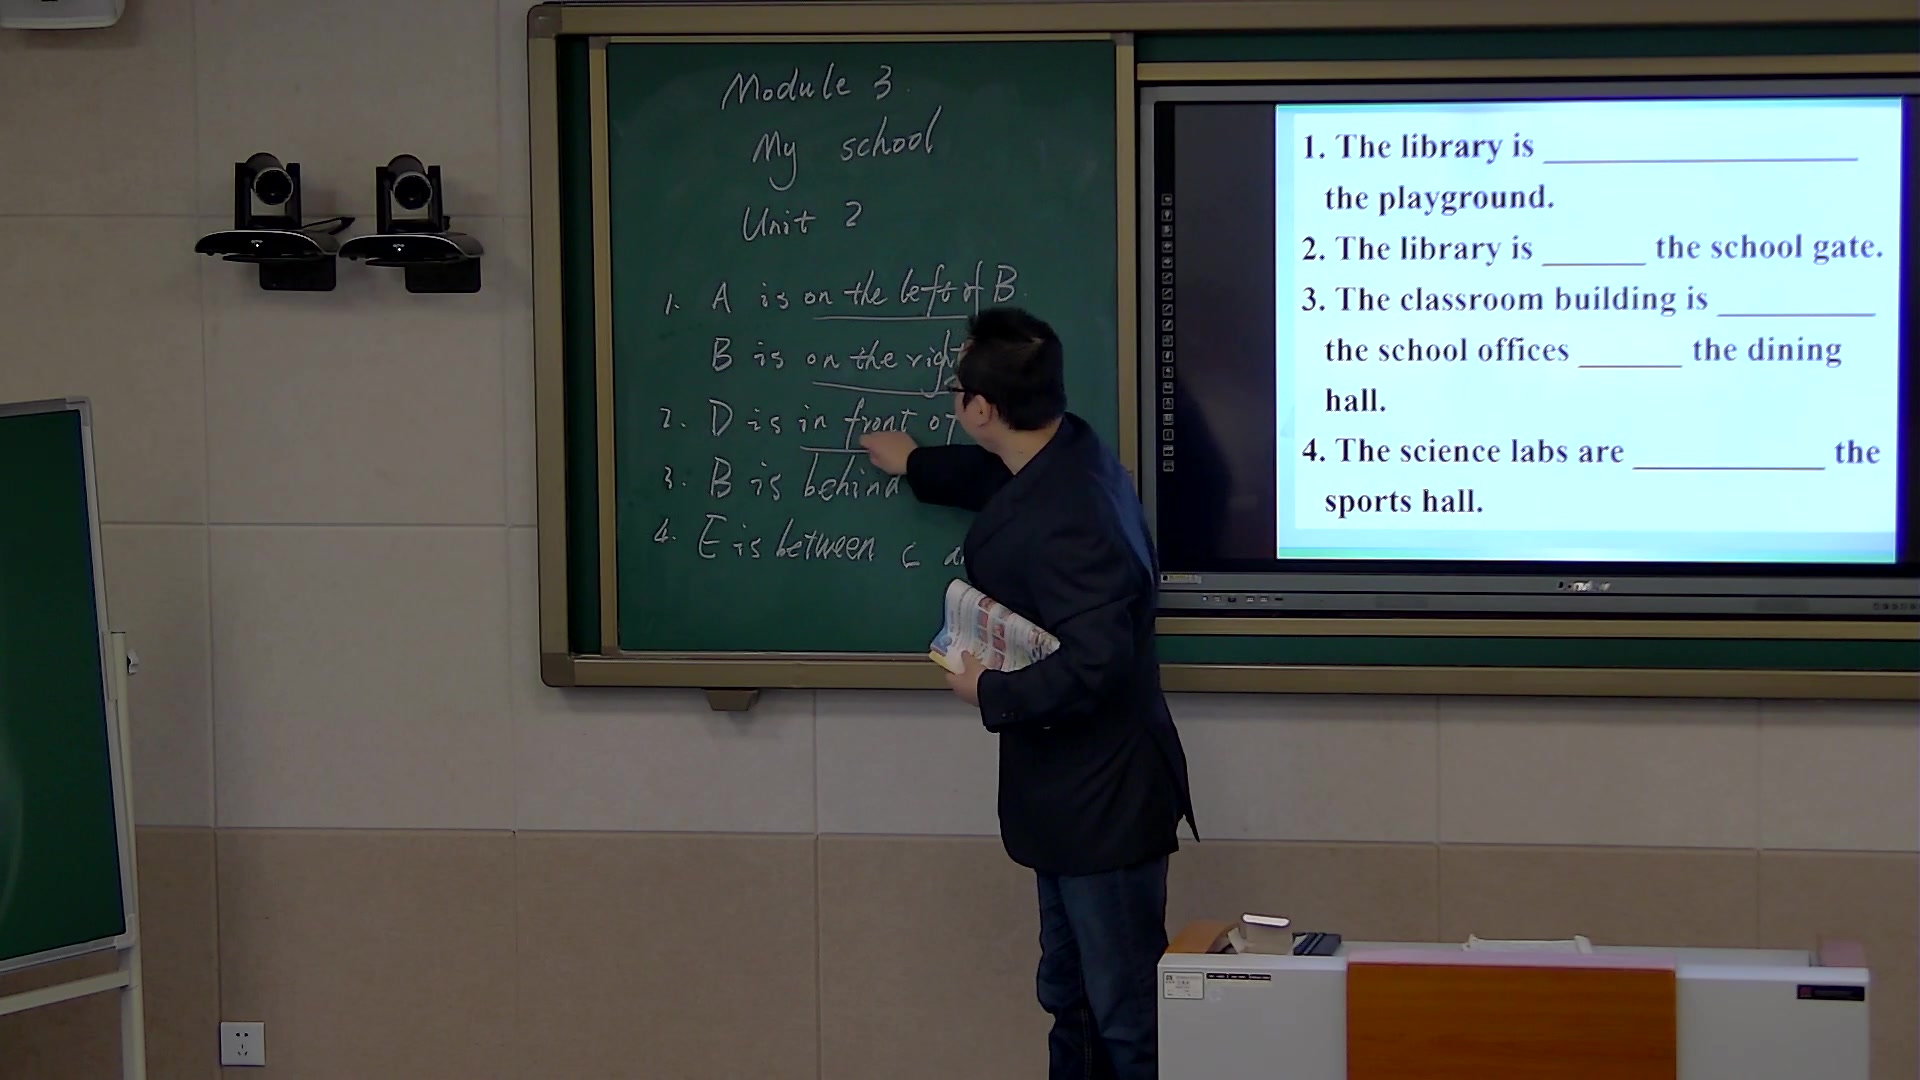 Module 3
My school
Unit 2
1. A is on the left of B.
B is on the right
2. D is in front of
3. B is behind
4. E is between C
1. The library is ____________________
the playground.
2. The library is _______ the school gate.
3. The classroom building is __________
the school offices _______ the dining
hall.
4. The science labs are ____________ the
sports hall.